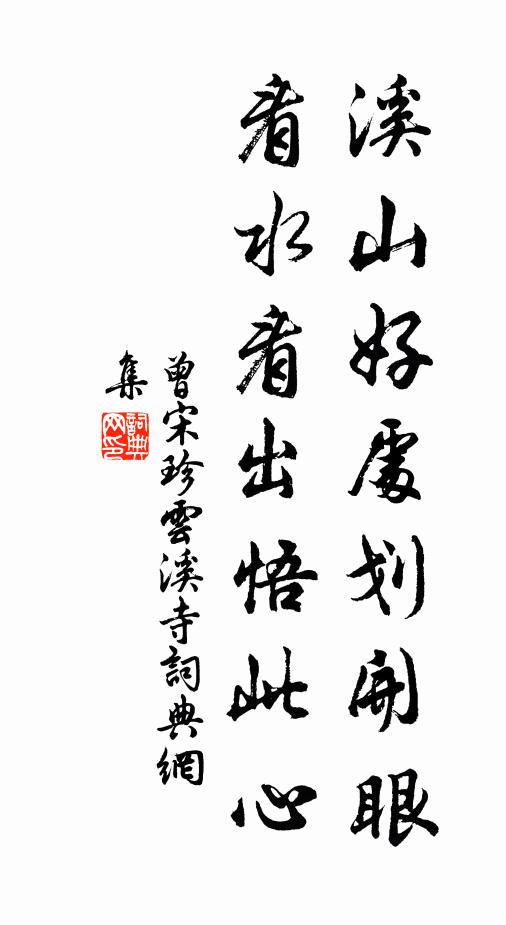 溪山好處划開眼
看水看出悟此心
曾宋珍雲溪寺詞典網
集
詞典
网印